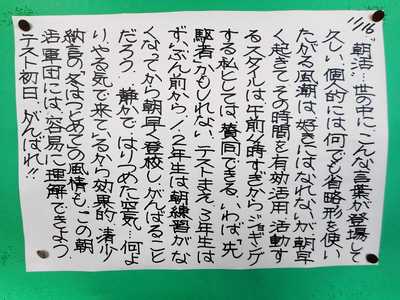 11/16
"朝活"…世の中に、こんな言葉が登場して
久しい。個人的には何でも省略形を使い
たがる風潮は、好きにはなれないが、朝早
く起きて、その時間を有効活用、活動す
るスタイルは、午前4時すぎからジョギング
する私としては、賛同できる。いわば"先
駆者"かもしれない。テストまえ、3年生は
ずいぶん前から、1、2年生は朝練習がな
くなってから朝早く登校し、がんばること
だろう。静かで、はりつめた空気…何よ
り、やる気で来ているから効果的。清少
納言の「冬はつとめて」の風情も、この朝
活軍団には、容易に理解できよう。
テスト初日、がんばれ!!